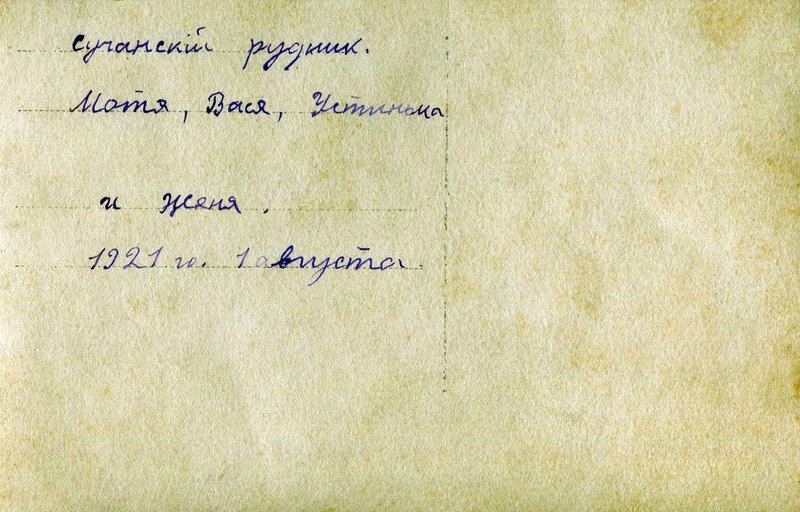 Сучанскій рудник.
Мотя, Вася, Устинька
и Женя.
1921 го. 1 августа